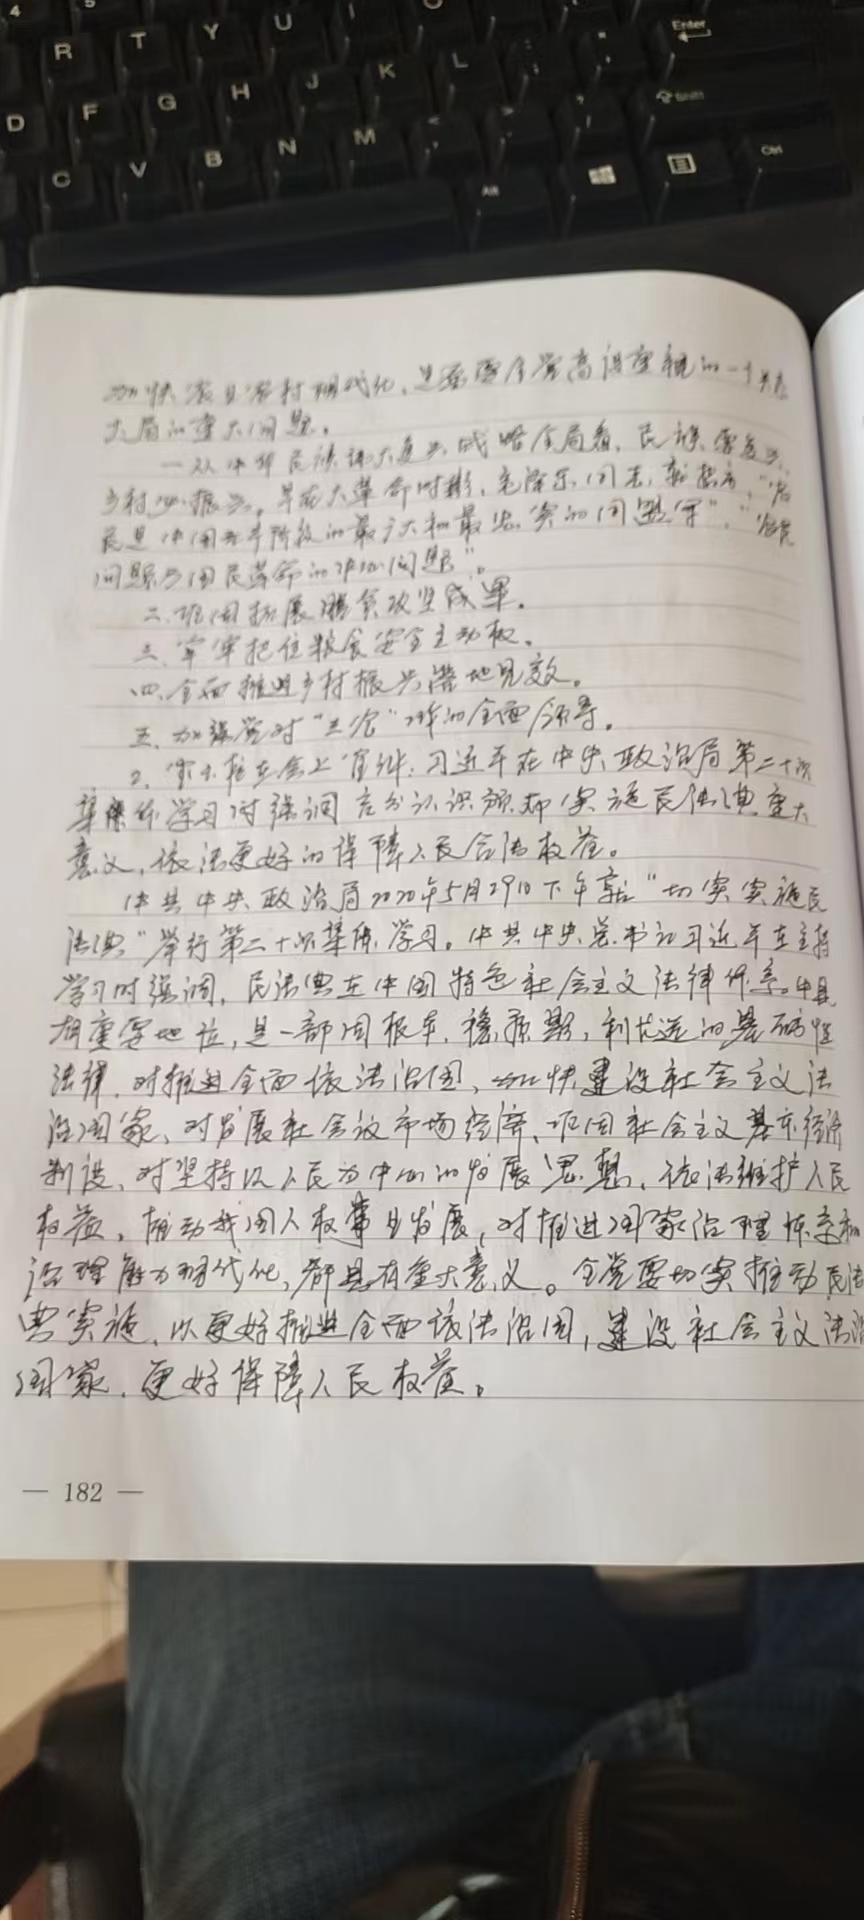 4 5
R T Y U I O Enter
D F G H J K L Shift
C V B N M Alt Ctrl
加快农业农村现代化,是需要全党高度重视的一个关系
大局的重大问题。
一从中华民族伟大复兴战略全局看,民族要复兴,
乡村必振兴。早在大革命时期,毛泽东同志就指出,"农
民是中国 阶段的最广大和最忠实的同盟军","农民
问题乃国民革命的中心问题"。
二.巩固拓展脱贫攻坚成果。
三.牢牢把住粮食安全主动权。
四.全面推进乡村振兴落地见效。
五.加强党对"三农"工作的全面领导。
2. 会上宣讲:习近平在中央政治局第二十次
集体学习时强调充分认识颁布实施民法典重大
意义,依法更好的保障人民合法权益。
中共中央政治局2020年5月29日下午就"切实实施民
法典"举行第二十次集体学习。中共中央总书记习近平在主持
学习时强调,民法典在中国特色社会主义法律体系中具
有重要地位,是一部固根本、稳预期、利长远的基础性
法律,对推进全面依法治国、加快建设社会主义法
治国家,对发展社会议市场经济、巩固社会主义基本经济
制度,对坚持以人民为中心的发展思想、依法维护人民
权益、推动我国人权事业发展,对推进国家治理体系和
治理能力现代化,都具有重大意义。全党要切实推动民法
典实施,以更好推进全面依法治国,建设社会主义法治
国家,更好保障人民权益。
— 182 —